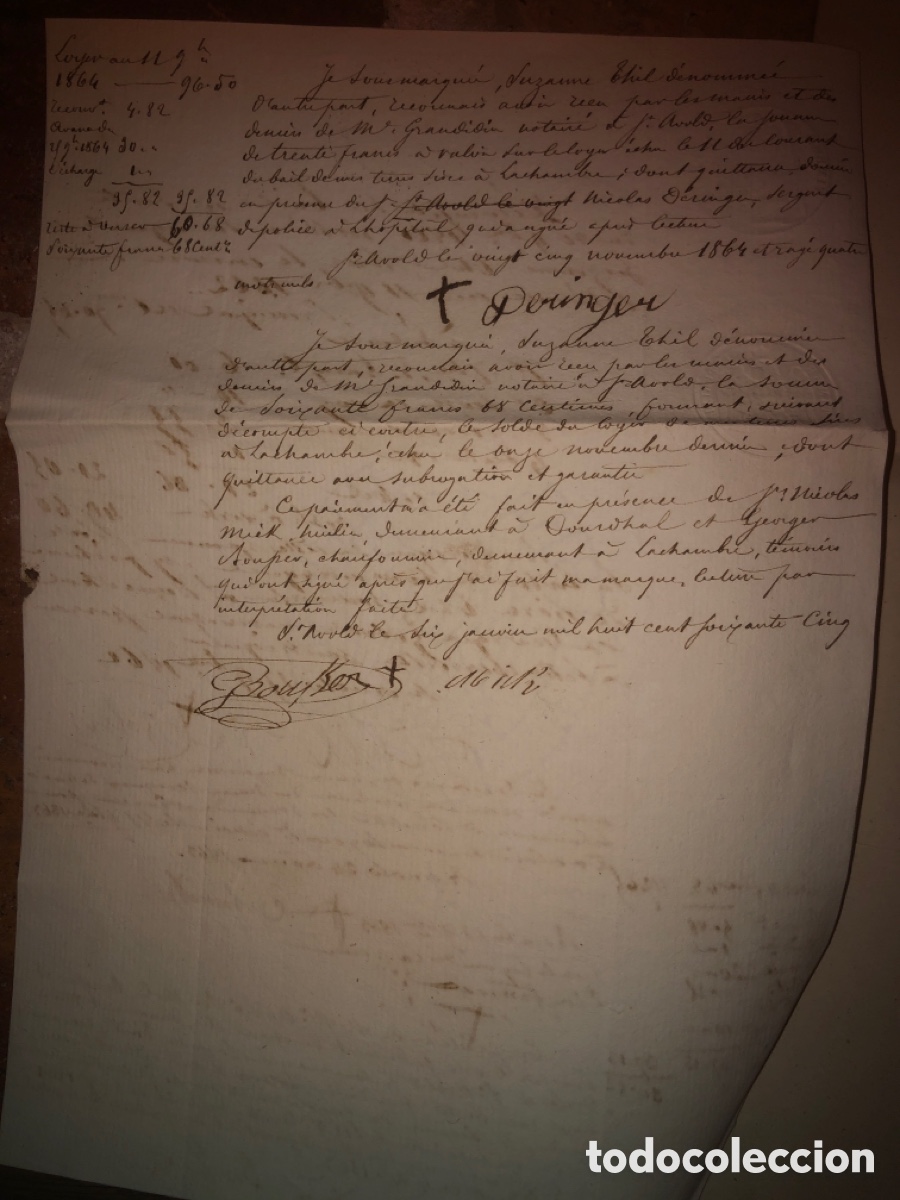 Loyer au 11 9bre
1864 — 96.50
recouvt 4.82
Avance du
25 9bre 1864 30.
1..
35.82 35.82
reste à verser 60.68
Soixante francs 68 Centes
Je Sous marquée, Suzanne Thil dénommée
d'autre part, reconnais avoir reçu par les mains et des
deniers de Me Grandidier notaire à St Avold, la somme
de trente francs à valoir sur le loyer échu le 11 du courant
du bail de mes terres sises à Lachambre ; dont quittance, donnée
en présence du Sr St Avold le vingt Nicolas Déringer, Sergent
de police à Lhopital, qui a signé après lecture
St Avold le vingt cinq novembre 1864 et rayé quatre
mots nuls
+ Deringer
Je Sous marquée, Suzanne Thil dénommée
d'autre part, reconnais avoir reçu par les mains et des
deniers de Me Grandidier notaire à St Avold, la somme
de Soixante francs 68 Centimes, formant, suivant
décompte ci contre, le solde du loyer de mes terres sises
à Lachambre, échu le onze novembre dernier, dont
quittance avec subrogation et garantie
Ce paiement m'a été fait en présence de Jn Nicolas
Mick, demeurant à Dourdhal et Georges
Bousker, chaufournier, demeurant à Lachambre, témoins
qui ont signé après que j'ai fait ma marque, lecture par
interprétation faite
St Avold le Six janvier mil huit cent Soixante Cinq
GBousker + Mick
todocoleccion